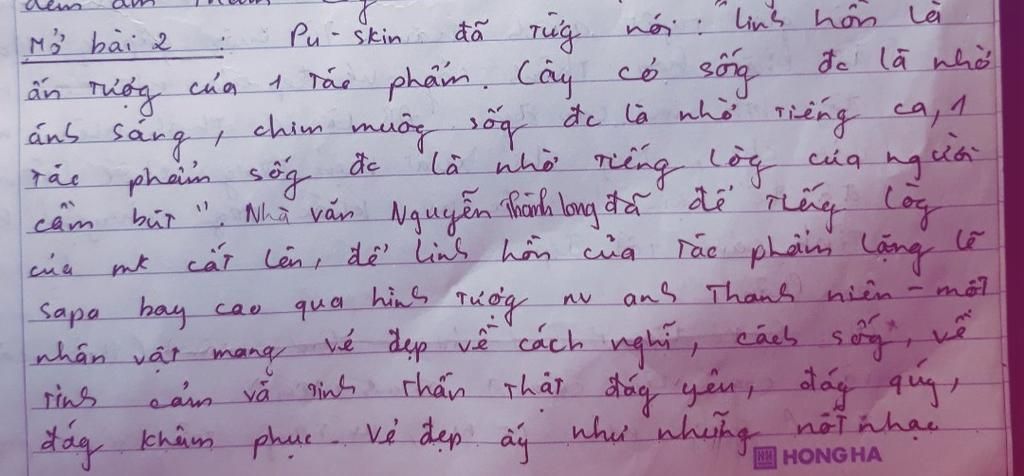 đem âm
Mở bài 2 : Pu-skin đã từg nói: "linh hồn là
ấn tượg của 1 tác phẩm. Cây có sốg đc là nhờ
ánh sáng, chim muôg sốg đc là nhờ tiếng ca, 1
tác phẩm sốg đc là nhờ tiếng lòg của người
cầm bút". Nhà văn Nguyễn Thành long đã để tiếng lòg
của mk cất lên, để linh hồn của tác phẩm lặng lẽ
sapa bay cao qua hình tượg nv anh thanh niên - một
nhân vật mang vẻ đẹp về cách nghĩ, cách sốg, về
tình cảm và tinh thần thật đág yêu, đág qúy,
đág khâm phục. Vẻ đẹp ấy như những nốt nhạc
HH HONG HA